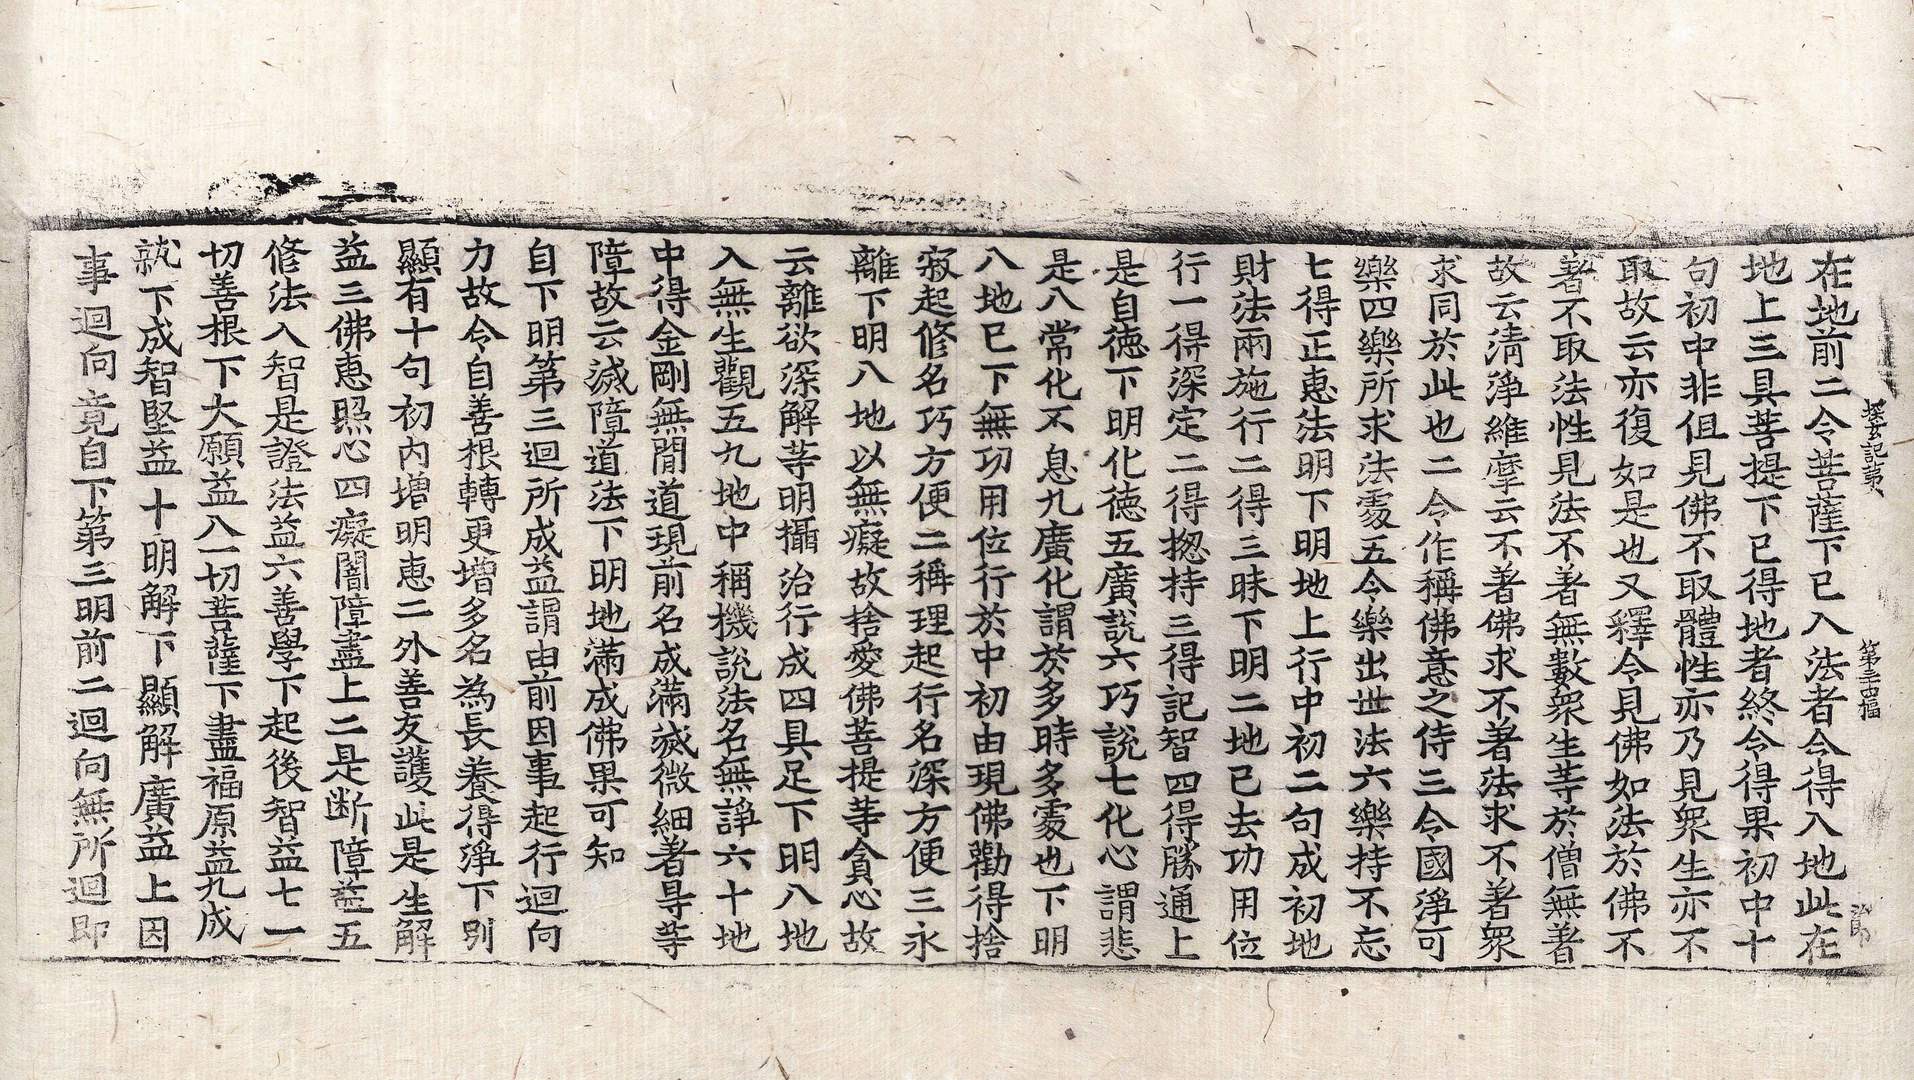 探玄記第八 第三十四幅 治郎
在地前二令菩薩下已入法者令得八地此在
地上三具菩提下已得地者終令得果初中十
句初中非但見佛不取體性亦乃見衆生亦不
取故云亦復如是也又釋令見佛如法於佛不
著不取法性見法不著無數衆生等於僧無著
故云清淨維摩云不著佛求不著法求不著衆
求同於此也二令作稱佛意之侍三令國淨可
樂四樂所求法處五令樂出世法六樂持不忘
七得正惠法明下明地上行中初二句成初地
財法兩施行二得三昧下明二地已去功用位
行一得深定二得揔持三得記智四得勝通上
是自德下明化德五廣說六巧說七化心謂悲
是八常化不息九廣化謂於多時多處也下明
八地已下無功用位行於中初由現佛勸得捨
寂起修名巧方便二稱理起行名深方便三永
離下明八地以無癡故捨愛佛菩提等貪心故
云離欲深解等明攝治行成四具足下明八地
入無生觀五九地中稱機說法名無諍六十地
中得金剛無閒道現前名成滿滅微細著㝵等
障故云滅障道法下明地滿成佛果可知
自下明第三迴所成益謂由前因事起行迴向
力故令自善根轉更增多名為長養得淨下別
顯有十句初內增明惠二外善友護此是生解
益三佛惠照心四癡闇障盡上二是断障益五
修法入智是證法益六善學下起後智益七一
切善根下大願益八一切菩薩下盡福原益九成
就下成智堅益十明解下顯解廣益上因
事迴向竟自下第三明前二迴向無所迴即